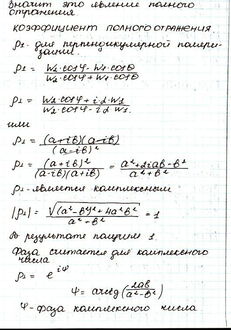 Значит это явление полного
отражения.
коэффициент полного отражения
ρ⊥ - для перпендикулярной поляри-
зации.
ρ⊥ = (W₂·cosφ - W₁·cosθ) / (W₂·cosφ + W₁·cosθ)
ρ⊥ = (W₂·cosφ + i·α·W₁) / (W₂·cosφ - i·α·W₁)
или
ρ⊥ = (a+ib)(a-ib) / (a-ib)²
ρ⊥ = (a+ib)² / (a-ib)(a+ib) = (a²+2iab-b²) / (a²+b²)
ρ⊥ - является комплексным
|ρ⊥| = √((a²-b²)²+4a²b²) / (a²+b²) = 1
В результате получим 1.
Фаза считается для комплексного
числа
ρ⊥ = e^{iψ}
ψ = arctg (2ab / (a²-b²))
ψ - фаза комплексного числа